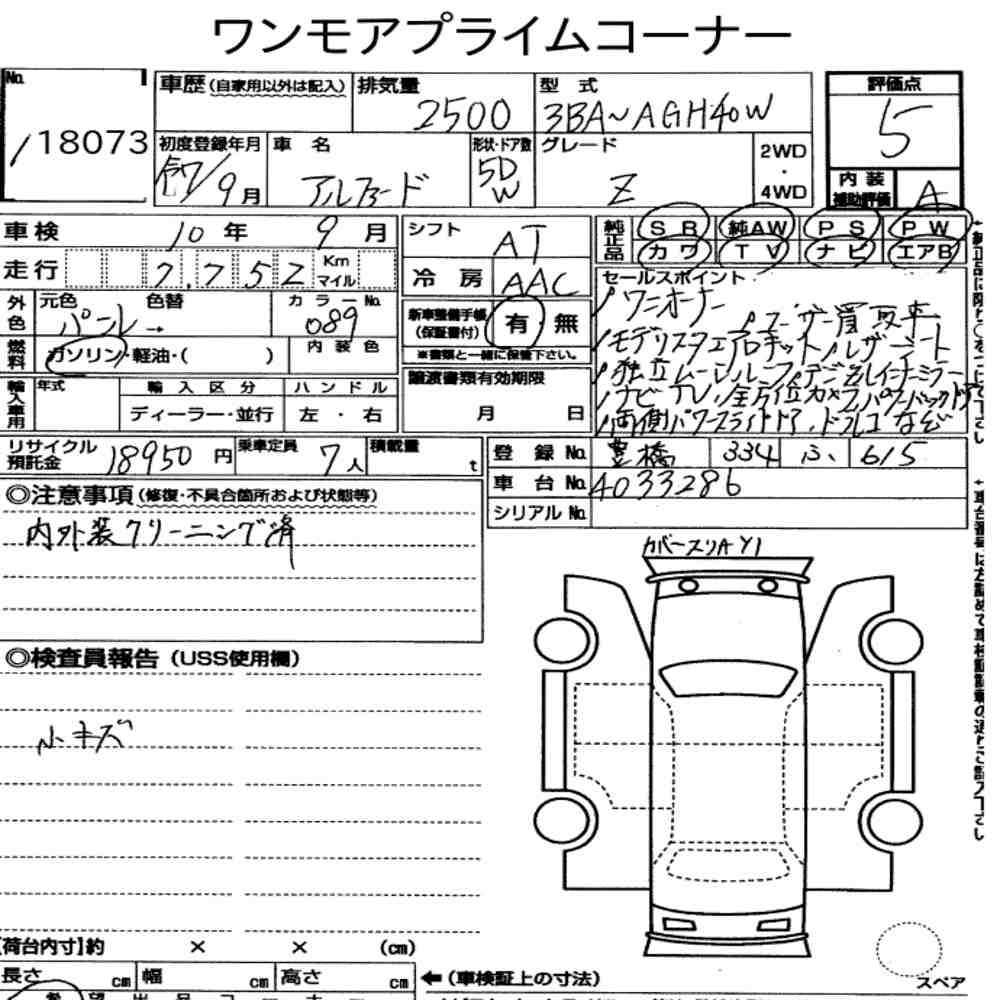 ワンモアプライムコーナー
No. 18073
車歴 (自家用以外は記入) 排気量 2500 型式 3BA~AGH40W
評価点 5
初度登録年月 7/9月 車名 アルファード 形状・ドア数 5D W グレード Z 2WD・4WD
内装補助評価 A
車検 10年 9月 シフト AT 純正品 SR 純AW PS PW
走行 7752 Km マイル 冷房 AAC カワ TV ナビ エアB
外色 元色 パール→ 色替 カラーNo. 089
新車整備手帳 (保証書付) 有・無
※書類と一緒に保管下さい。
燃料 ガソリン・軽油・( ) 内装色
セールスポイント
ワンオーナー ユーザー買取車
モデリスタエアロキット レザーシート
独立ムーンルーフ デジタルインナーミラー
ナビTV 全方位カメラ パワーバックドア
両側パワースライドドア ドラレコ など
輸入車用 年式 輸入区分 ハンドル
ディーラー・並行 左・右
譲渡書類有効期限
月 日
リサイクル預託金 18950円 乗車定員 7人 積載量 t
登録No. 豊橋 334 ふ 615
車台No. 4033286
シリアルNo.
◎注意事項 (修復・不具合箇所および状態等)
内外装クリーニング済
カバースリA Y1
◎検査員報告 (USS使用欄)
小キズ
スペア
【荷台内寸】約 × × (cm)
長さ cm 幅 cm 高さ cm
←(車検証上の寸法)